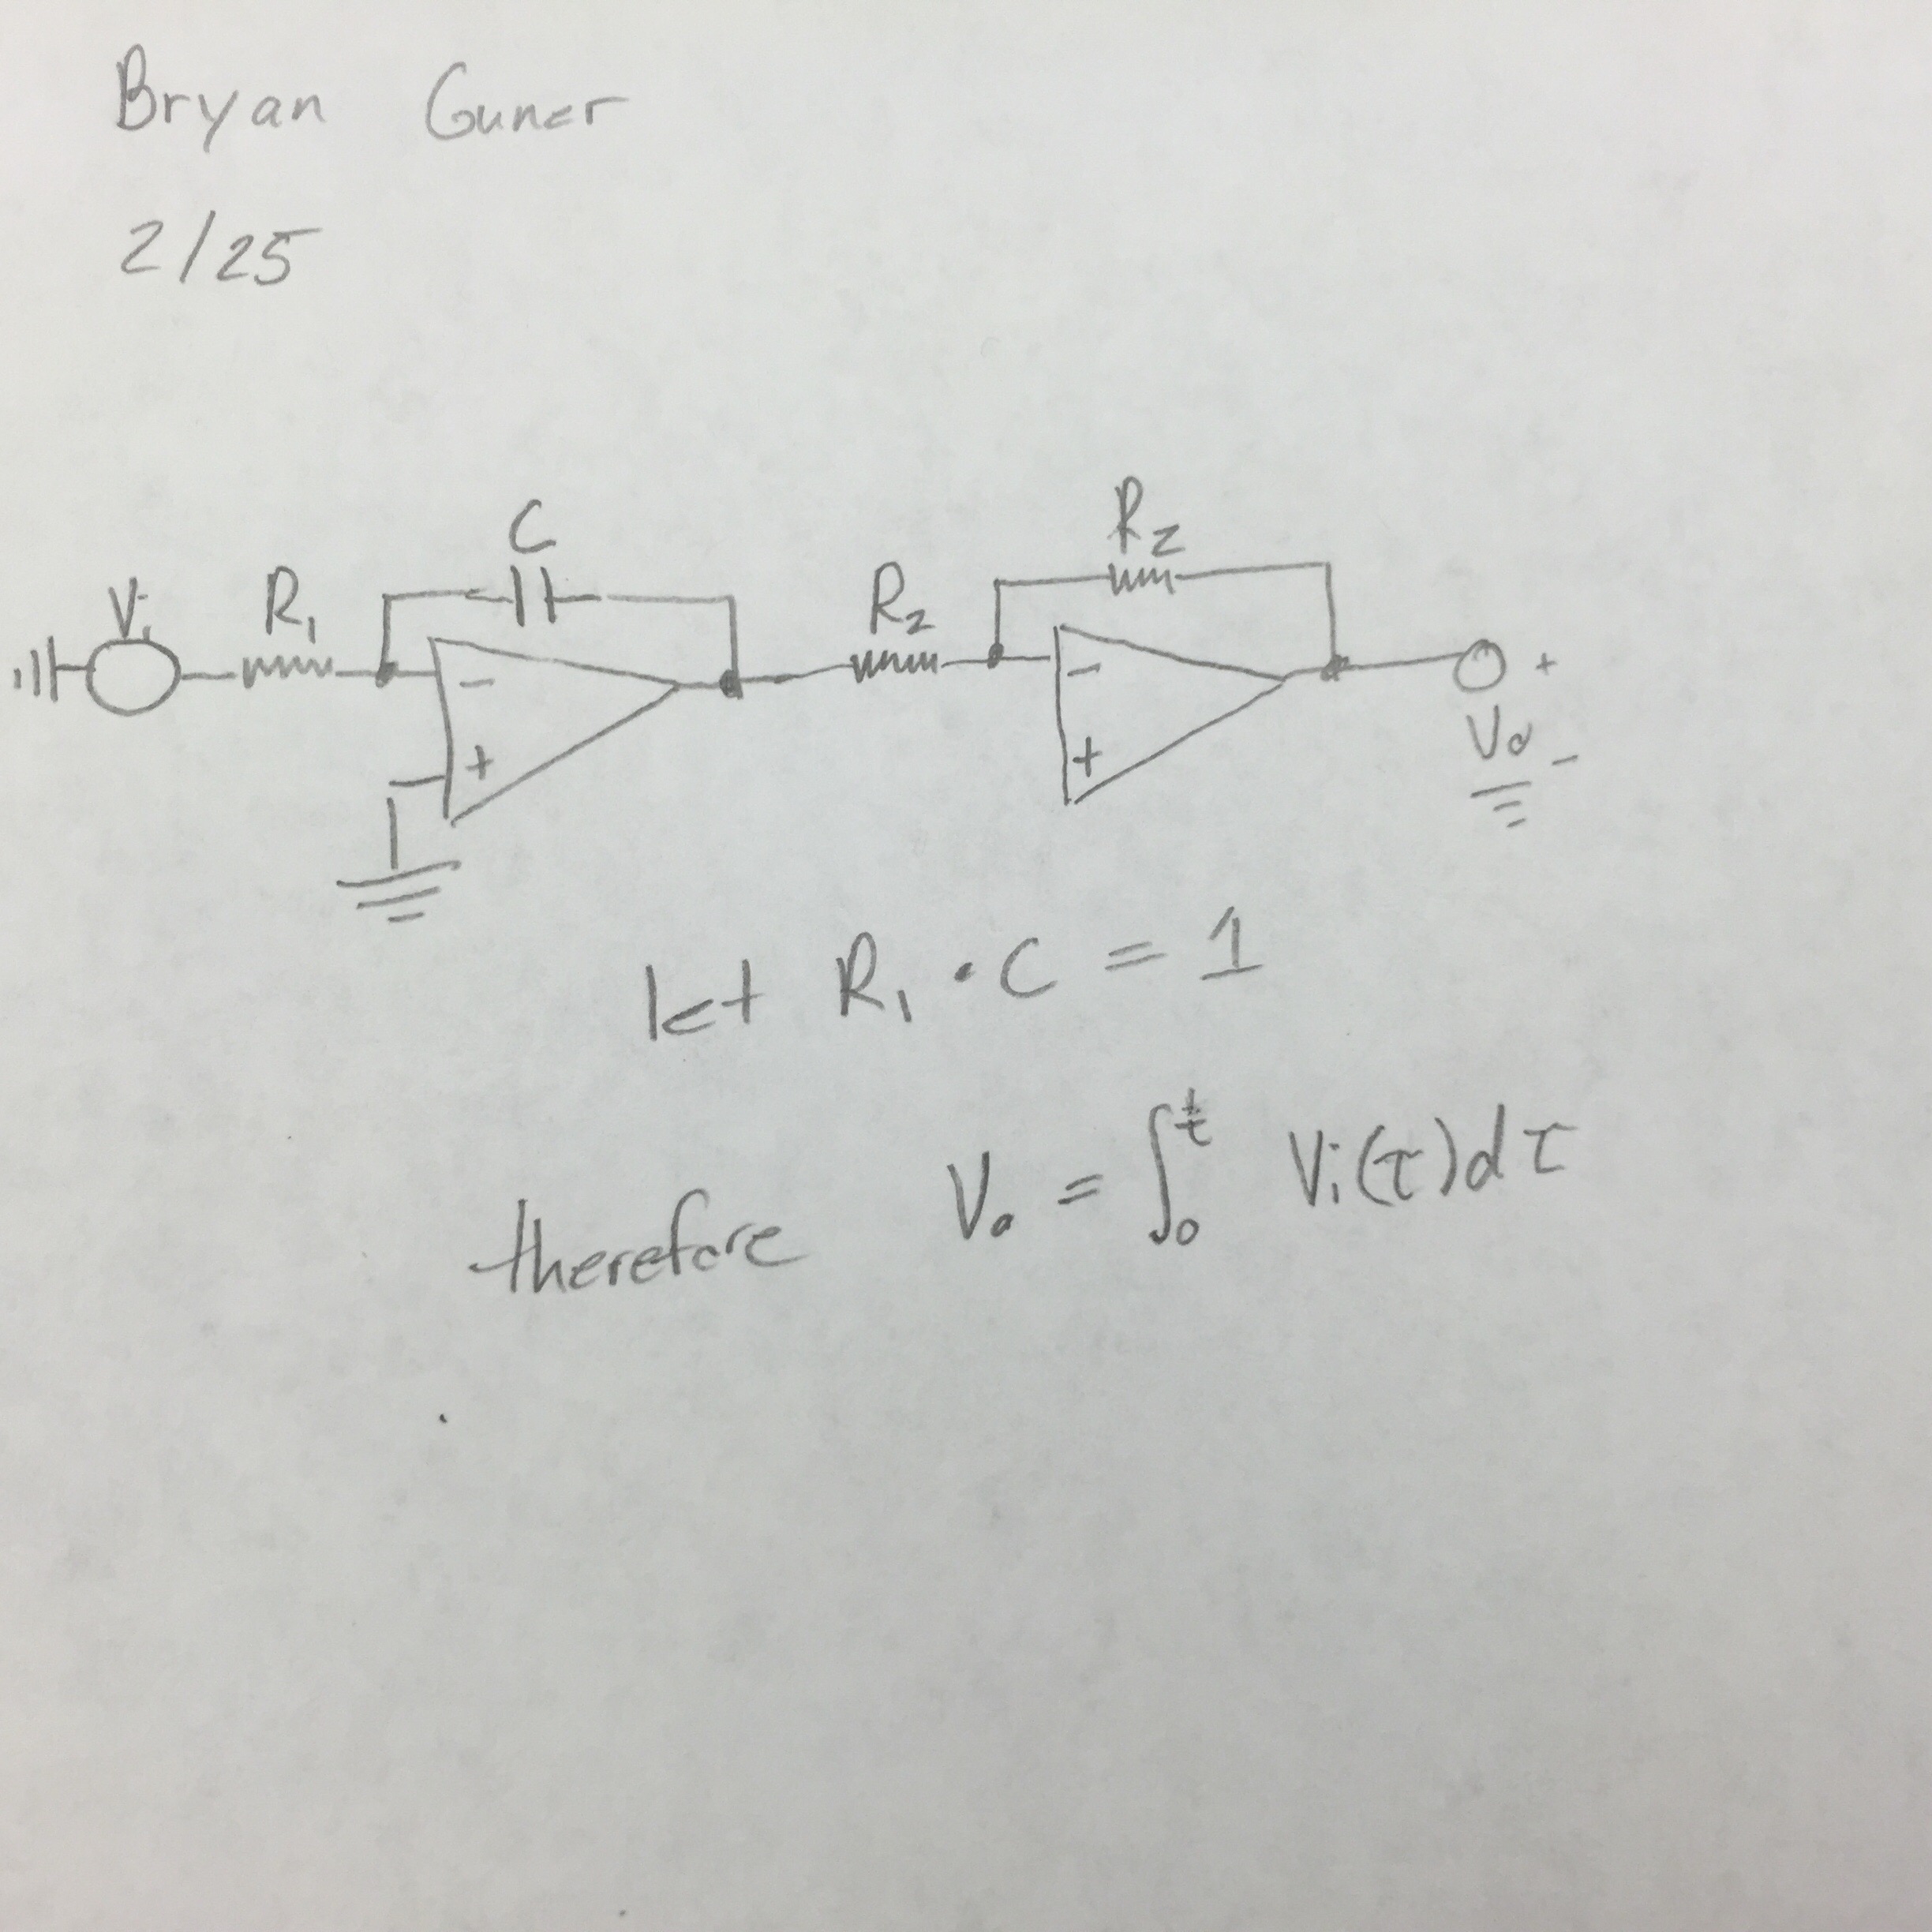 Bryan Guner
2/25
C
R2
Vi
R1
R2
-
+
-
+
+
Vo
-
let R1 · C = 1
therefore Vo = ∫₀ᵗ Vi(τ)dτ